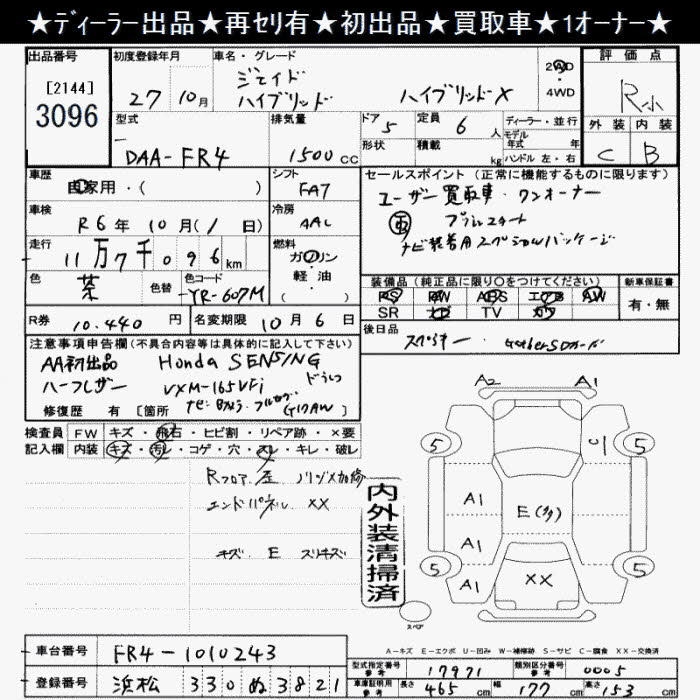 ★ディーラー出品★再セリ有★初出品★買取車★1オーナー★
出品番号 初度登録年月 車名・グレード 評価点
[2144]
3096
27 10月
ジェイド
ハイブリッド ハイブリッドX
2WD
・
4WD
R小
外装 内装
C B
型式 排気量 ドア 定員 ディーラー・並行
DAA-FR4 1500cc 5 6人
形状 積載 kg
モデル年式 年式
ハンドル 左・右
車歴 自家用・( ) シフト FA7
車検 R6年10月(1日) 冷房 AAC
走行 11万7千096km 燃料 ガソリン・軽油・( )
色 茶 色替 色コード YR-607M
R券 10.440円 名変期限 10月6日
セールスポイント(正常に機能するものに限ります)
ユーザー買取車・ワンオーナー
プッシュスタート
ナビ装着用スペシャルパッケージ
装備品(純正品に限り○をつけてください) 新車保証書
PS PW ABS エアB AW
SR ナビ TV カワ
有・無
後日品 スペアキー
注意事項申告欄(不具合内容等は具体的に記入して下さい)
AA初出品 Honda SENSING
ハーフレザー VXM-165VFi ドラレコ
ナビ・Bカメラ・フルセグ G17AW
修復歴 有 [箇所 ]
検査員 FW キズ・飛石・ヒビ割・リペア跡・×要
記入欄 内装 キズ・汚レ・コゲ・穴・スレ・キレ・破レ
Rフロア歪
エンドパネル XX
キズ E スリキズ
内外装清掃済
A2 A1
5 5
C
A1
E(多)
A1
5 A1 XX 5
スペア
A-キズ E-エクボ U-凹み W-補修跡 S-サビ C-腐食 XX-交換済
車台番号 FR4-1010243
登録番号 浜松 330 ぬ 3821
型式指定番号 参考 17971 類別区分番号 参考 0005
車庫証明用 参考 長さ 465cm 幅 177cm 高さ 153cm